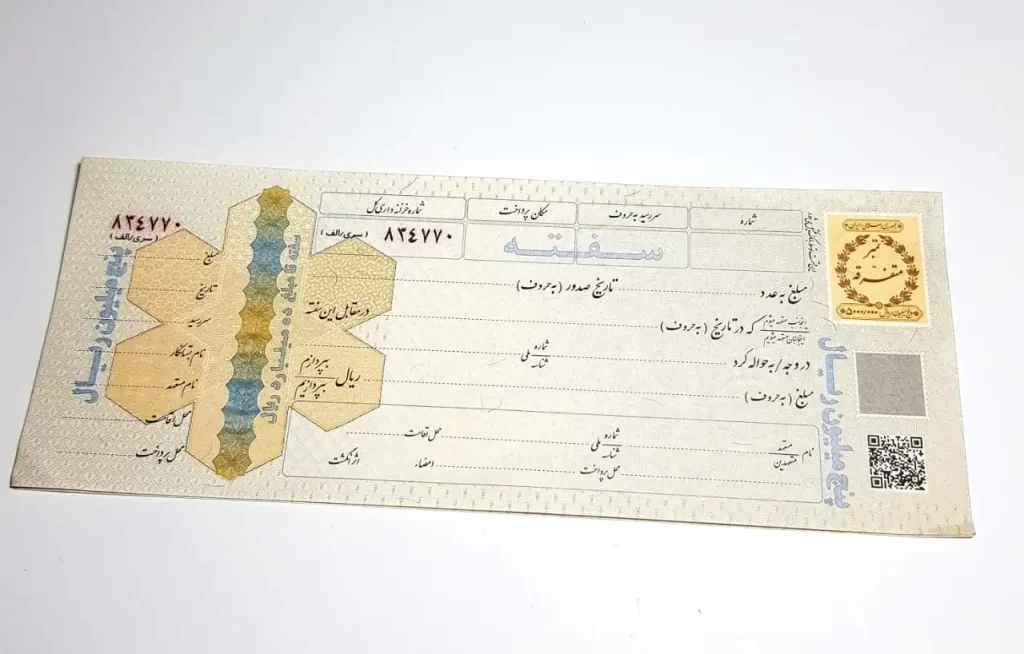 شماره
سررسید به حروف
مکان پرداخت
شماره خزانه داری کل
۸۳٤۷۷۰
(سری/الف)
سفته
مبلغ به عدد
تاریخ صدور (به حروف)
در مقابل این سفته
اینجانب متعهد میشوم
اینجانبان متعهد میشویم
که در تاریخ (به حروف)
در وجه / به حواله کرد
شماره ملی
شناسه
مبلغ (به حروف)
ریال
بپردازم
بپردازیم
نام
متعهد
متعهدین
شماره ملی
شناسه
محل اقامت
محل پرداخت
امضاء
اثر انگشت
پنج میلیون ریال
جمهوری اسلامی ایران
تمبر
متفرقه
پنج میلیون ریال
۵۰۰۰/۰۰۰
سفته تا مبلغ ده میلیارد ریال
۸۳٤۷۷۰
(سری/الف)
مبلغ
تاریخ
سررسید
نام بستانکار
نام متعهد
محل اقامت
محل پرداخت
پنج میلیون ریال